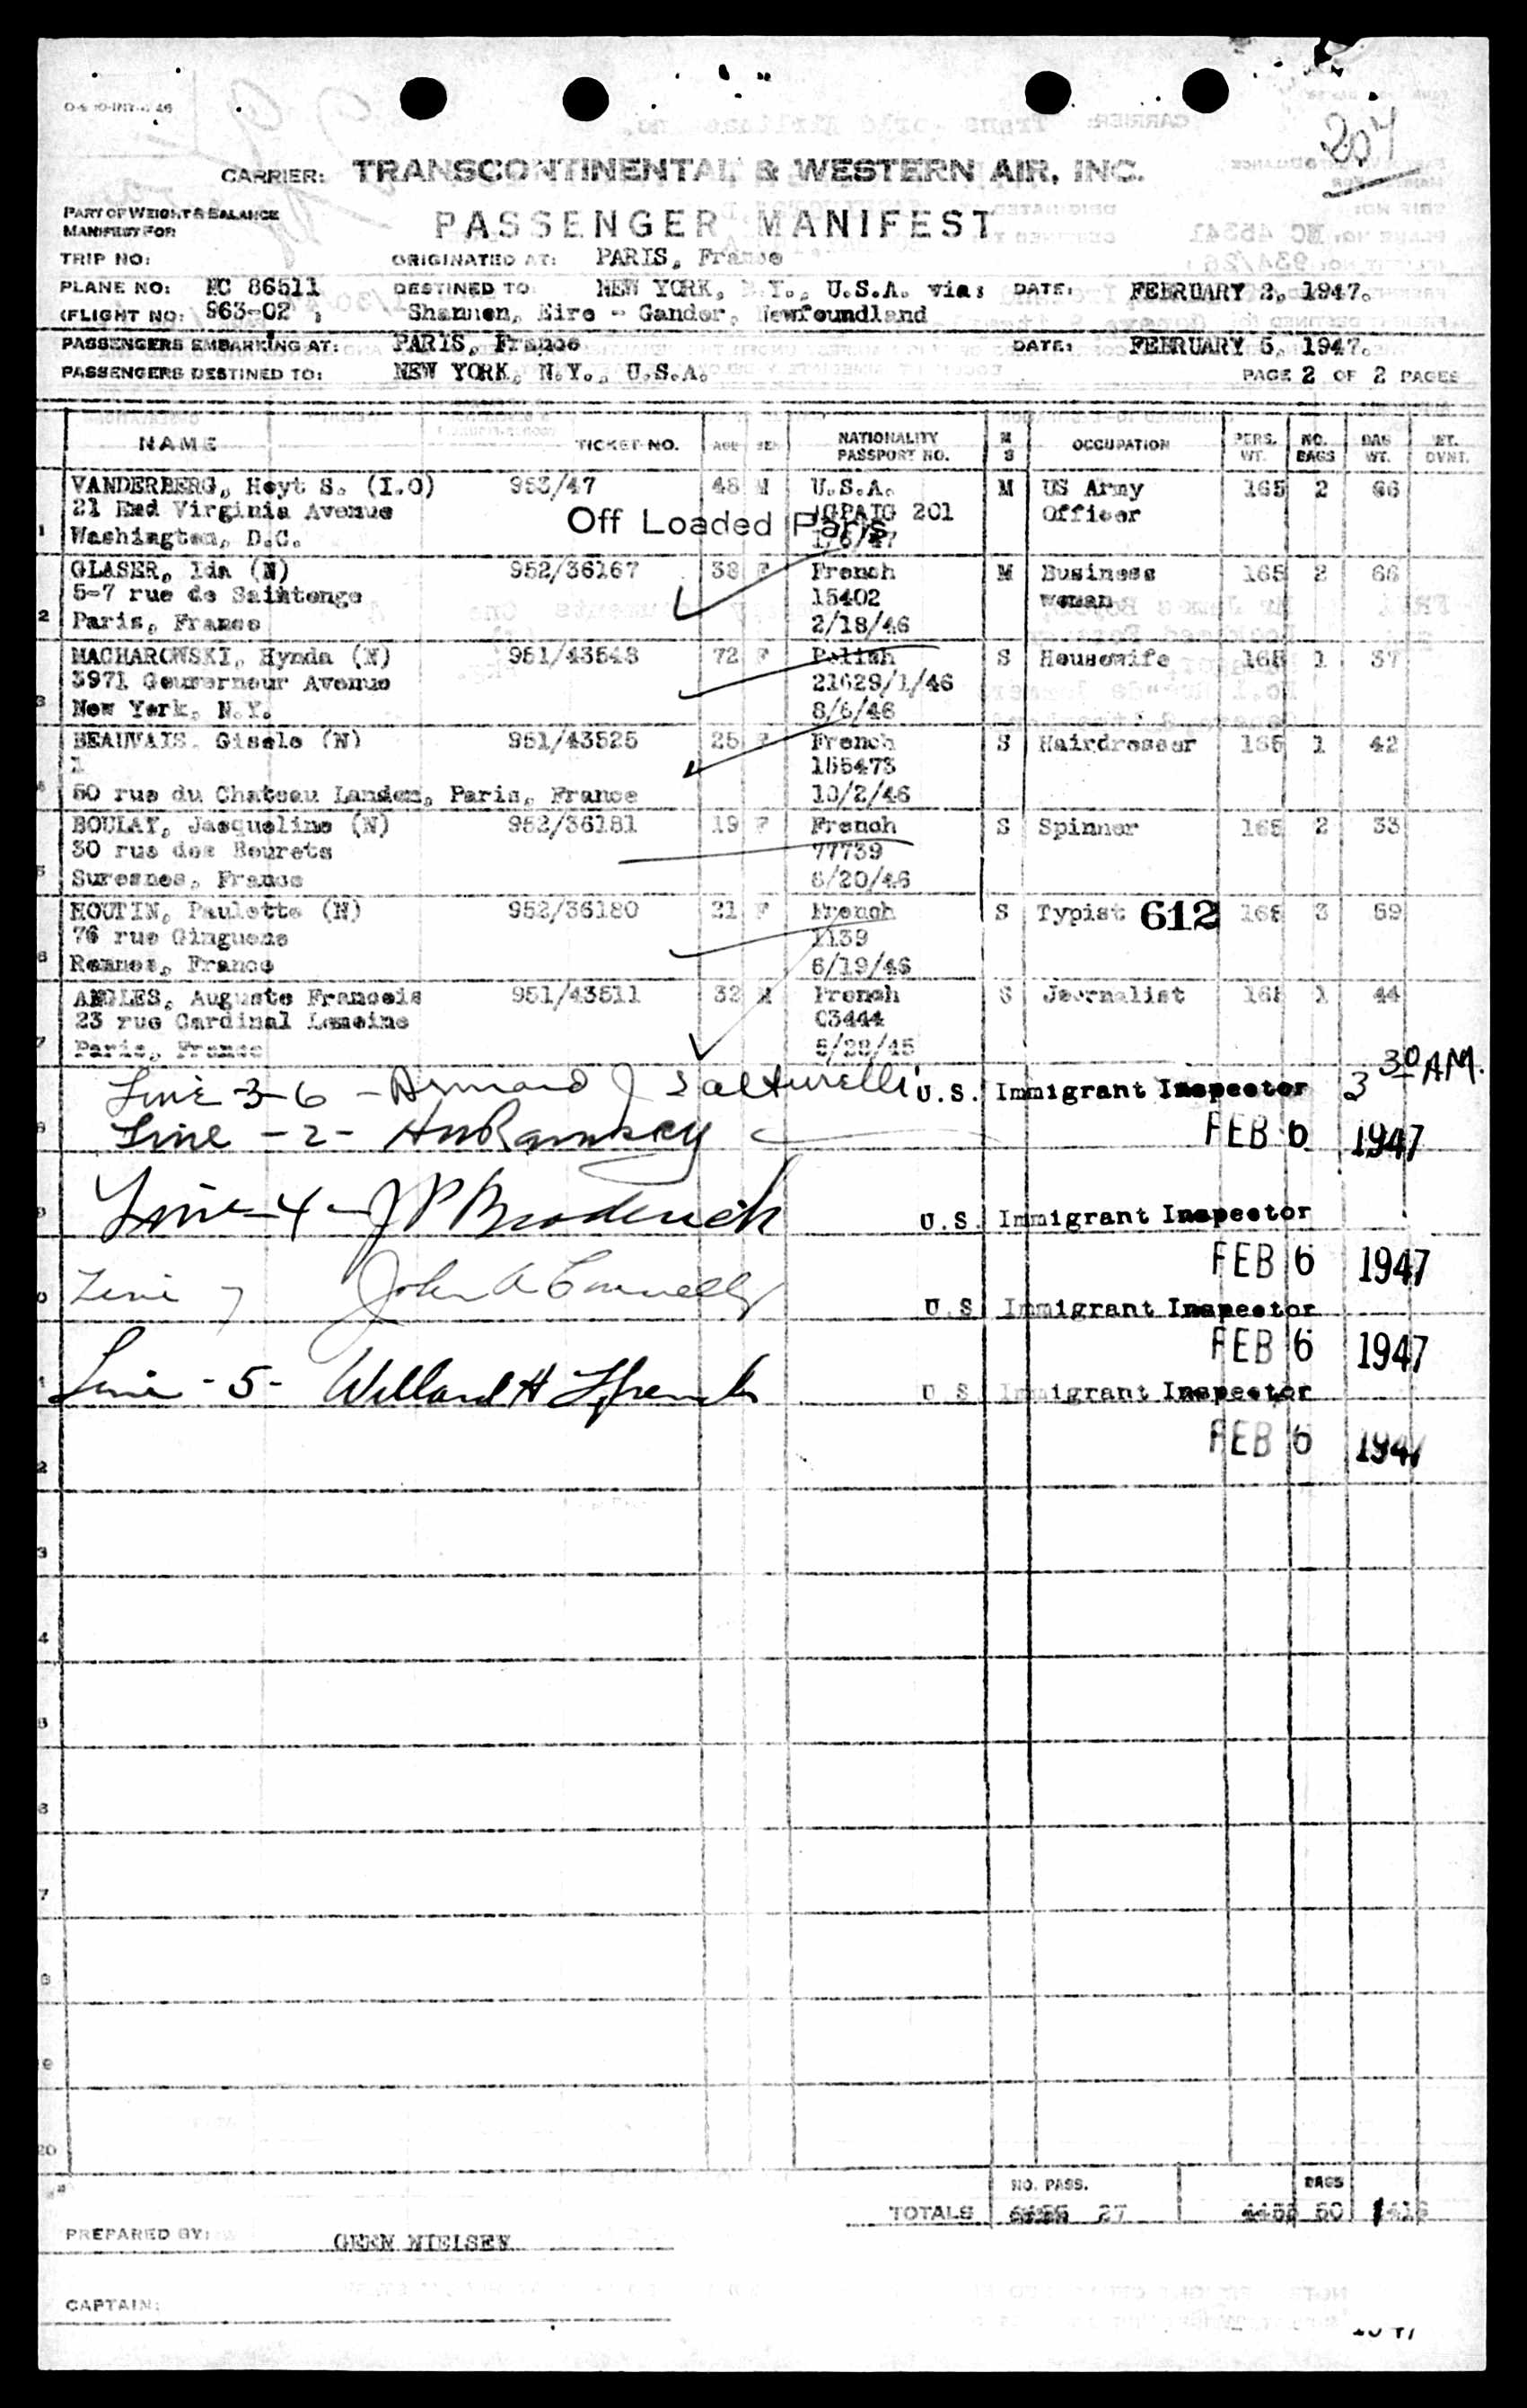 207
CARRIER: TRANSCONTINENTAL & WESTERN AIR, INC.
PART OF WEIGHT & BALANCE
MANIFEST FOR
PASSENGER MANIFEST
TRIP NO: ORIGINATED AT: PARIS, France
PLANE NO: NC 86511 DESTINED TO: NEW YORK, N.Y., U.S.A. via: DATE: FEBRUARY 2, 1947.
(FLIGHT NO: 963-02 ) Shannon, Eire - Gander, Newfoundland
PASSENGERS EMBARKING AT: PARIS, France DATE: FEBRUARY 5, 1947.
PASSENGERS DESTINED TO: NEW YORK, N.Y., U.S.A. PAGE 2 OF 2 PAGES
NAME TICKET NO. AGE SEX NATIONALITY PASSPORT NO. M S OCCUPATION PERS. WT. NO. BAGS BAG WT.
VANDERBERG, Hoyt S. (I.O) 953/47 48 M U.S.A. M US Army 165 2 66
21 Virginia Avenue 201 Officer
Off Loaded Paris
1 Washington, D.C. 1/6/47
GLASER, Ida (N) 952/36167 38 F French M Business 165 2 66
5-7 rue de Saintonge 15402 woman
2 Paris, France 2/18/46
MACHAROWSKI, Hynda (N) 951/43543 72 F Polish S Housewife 165 1 37
3971 Gouverneur Avenue 21629/1/46
3 New York, N.Y. 8/6/46
BEAUVAIS. Gisele (N) 951/43525 25 F French S Hairdresser 165 1 42
1 155473
50 rue du Chateau Landon, Paris, France 10/2/46
BOULAY, Jacqueline (N) 952/36181 19 F French S Spinner 165 2 33
30 rue des Bourets 77739
5 Suresnes, France 6/20/46
MOUTIN, Paulette (N) 952/36180 21 F French S Typist 612 165 3 59
76 rue Ginguene 1139
6 Rennes, France 6/19/46
ANGLES, Auguste Francois 951/43511 32 M French S Journalist 165 1 44
23 rue Cardinal Lemoine 03444
7 Paris, France 5/28/45
Line 3-6 - Armand J Salturelli U.S. Immigrant Inspector 3 30 AM.
Line - 2 - HM Ramsey FEB 6 1947
Line - 4 - J P Broderick U.S. Immigrant Inspector
FEB 6 1947
Line 7 John A Connelly U.S. Immigrant Inspector
FEB 6 1947
Line - 5 - Willard H U.S. Immigrant Inspector
FEB 6 1947
2
3
4
5
6
7
8
9
20
NO. PASS. BAGS
TOTALS 27 4455 50 1416
PREPARED BY: GERN NIELSEN
CAPTAIN: